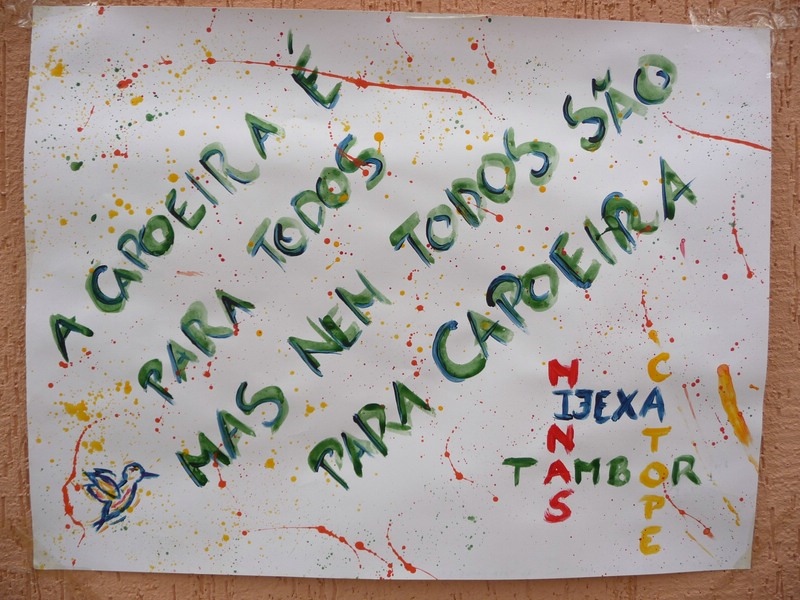 A CAPOEIRA É
PARA TODOS
MAS NEM TODOS SÃO
PARA CAPOEIRA
MINAS
IJEXA
TAMBOR
CATOPE